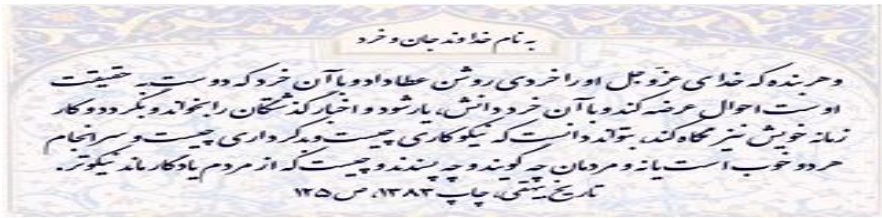 به نام خداوند جان و خرد
و هر بنده که خدای عزّوجل او را خردی روشن عطا داد و با آن خرد که دوست به حقیقت
اوست احوال عرضه کند و با آن خرد دانش، یار شود و اخبار گذشتگان را بخواند و بگردد و کار
زمانه خویش نیز نگاه کند، بتواند دانست که نیکوکاری چیست و بدکرداری چیست و سرانجام
هر دو خوب است یا نه و مردمان چه گویند و چه پسندند و چیست که از مردم یادگار ماند نیکوتر.
تاریخ بیهقی، چاپ ۱۳۸۳، ص ۱۲۵